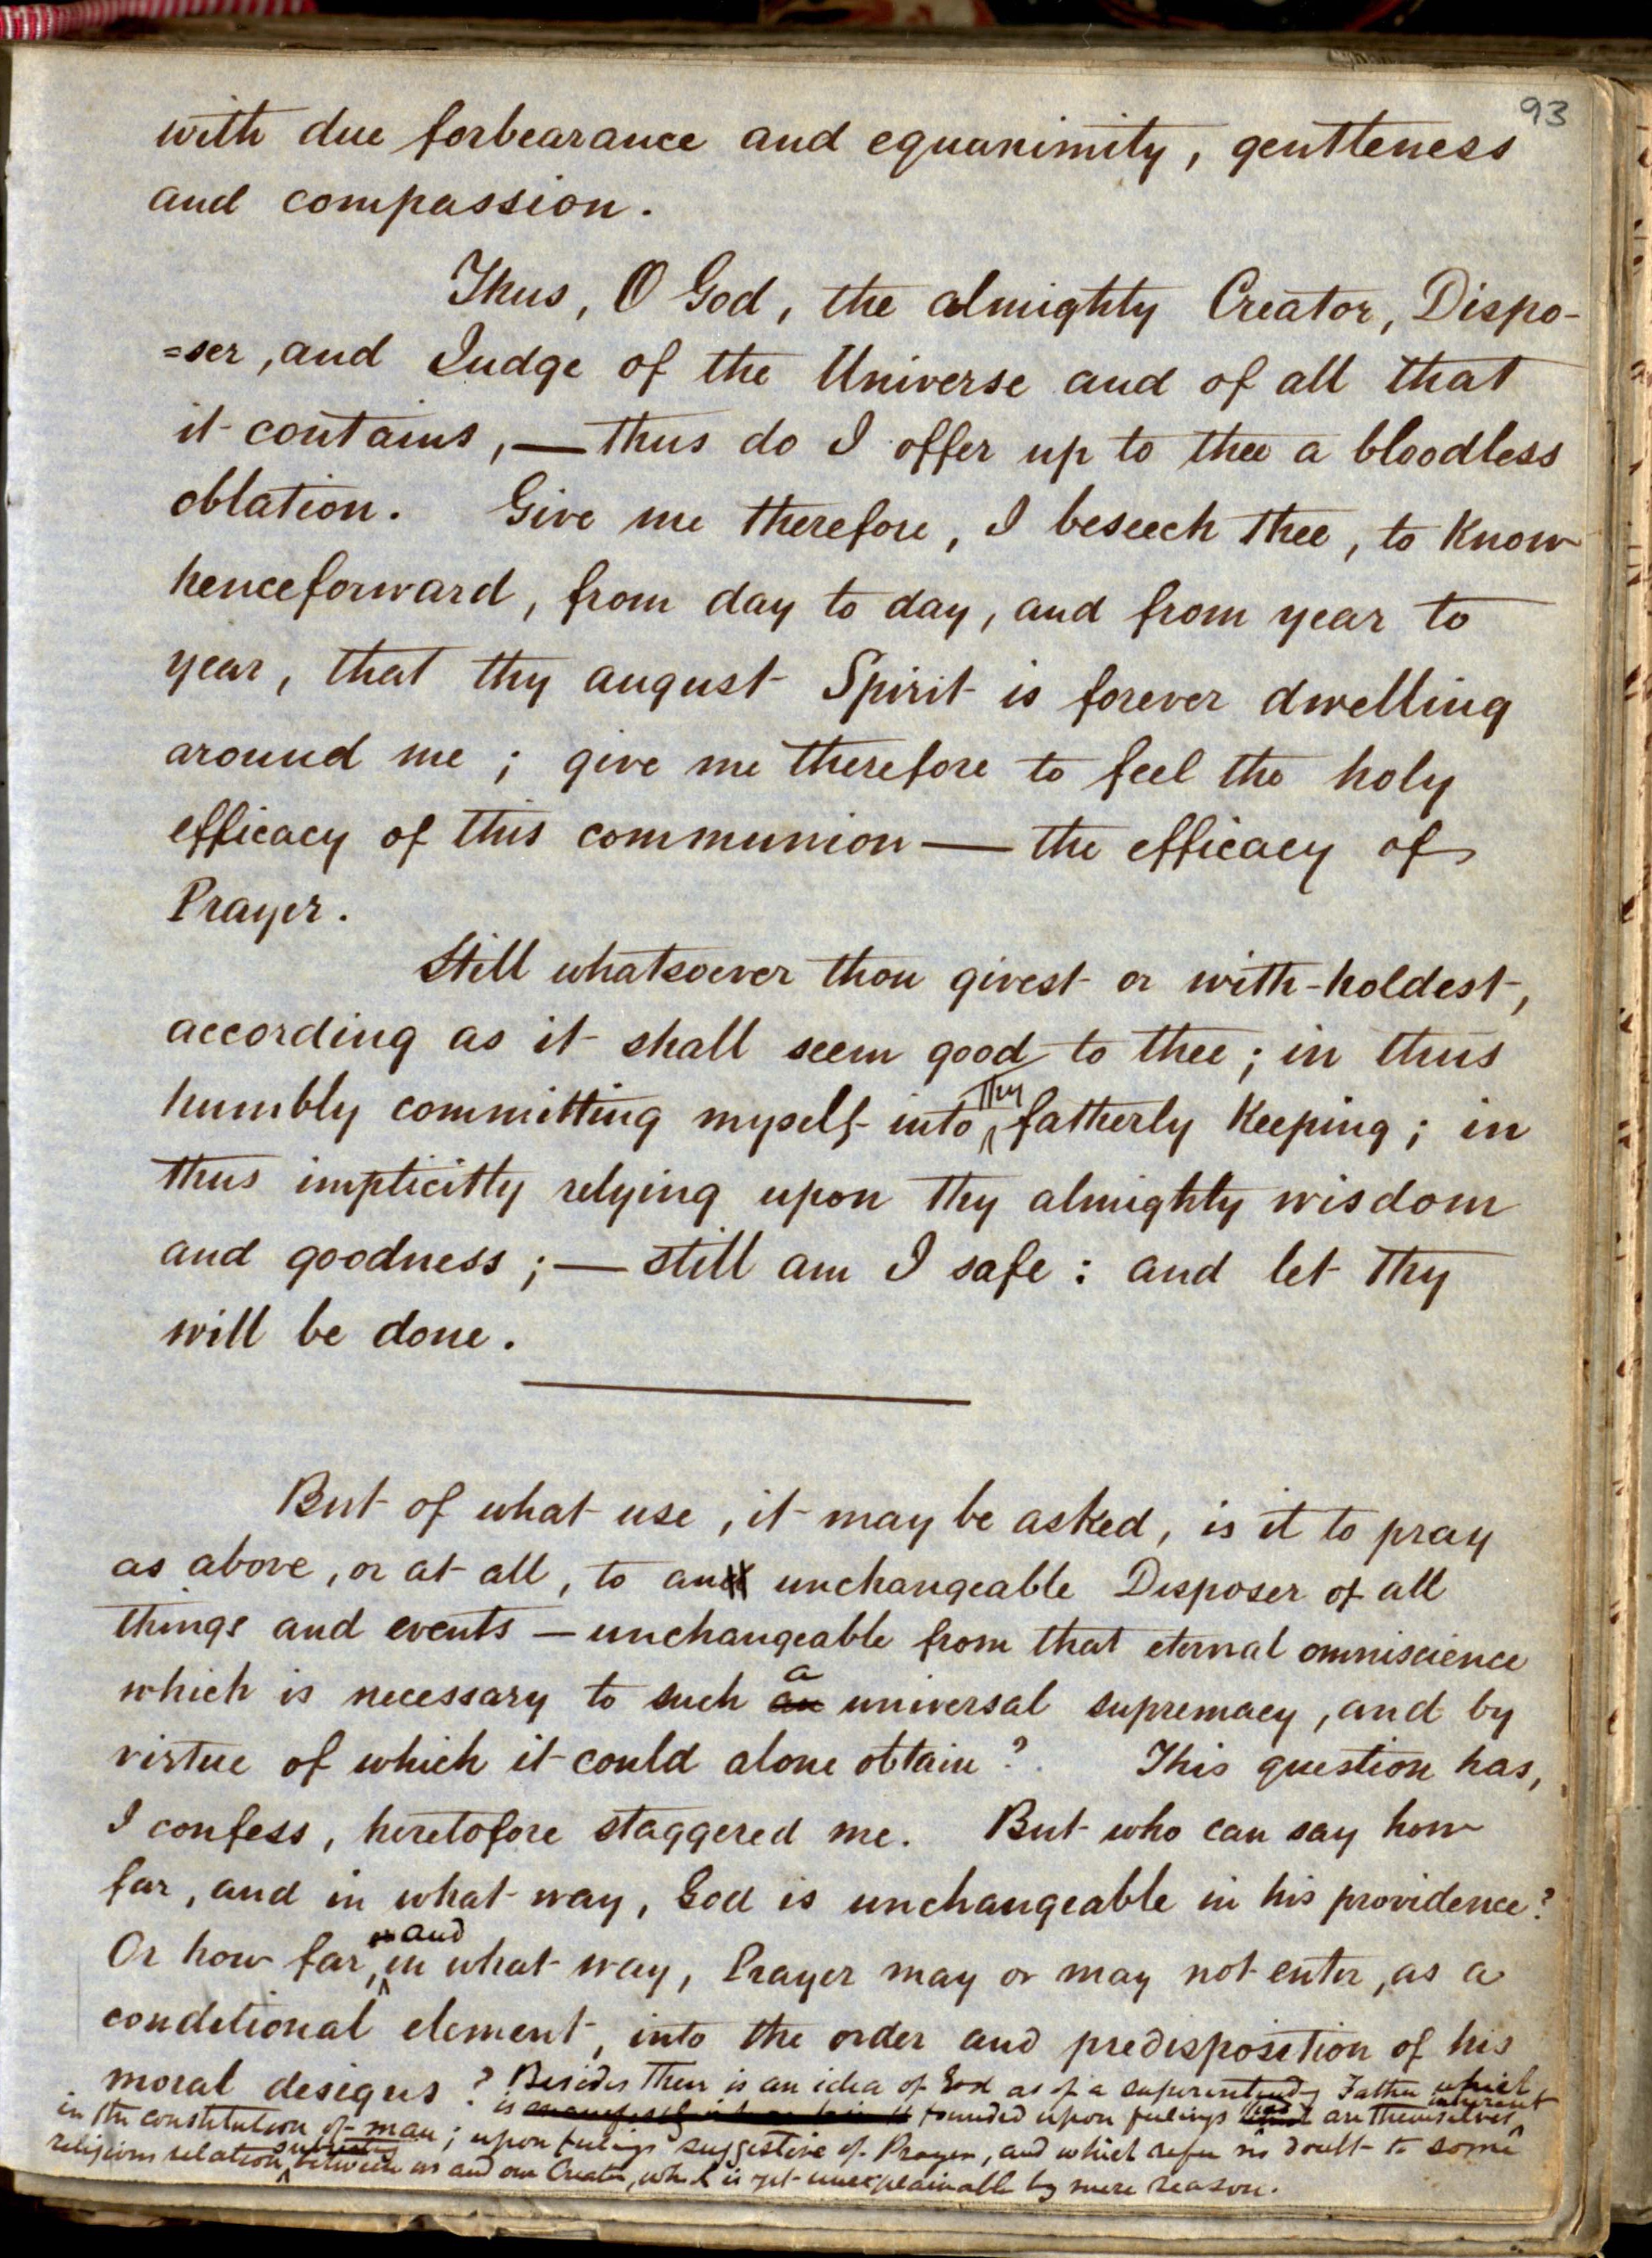 93
with due forbearance and equanimity, gentleness
and compassion.
Thus, O God, the almighty Creator, Dispo-
=ser, and Judge of the Universe and of all that
it contains, — thus do I offer up to thee a bloodless
oblation. Give me therefore, I beseech thee, to know
henceforward, from day to day, and from year to
year, that thy august Spirit is forever dwelling
around me; give me therefore to feel the holy
efficacy of this communion — the efficacy of
Prayer.
Still whatsoever thou givest or with-holdest,
according as it shall seem good to thee; in thus
humbly committing myself into thy fatherly keeping; in
thus implicitly relying upon thy almighty wisdom
and goodness; — still am I safe: and let thy
will be done.
But of what use, it may be asked, is it to pray
as above, or at all, to an unchangeable Disposer of all
things and events — unchangeable from that eternal omniscience
which is necessary to such a universal supremacy, and by
virtue of which it could alone obtain? This question has,
I confess, heretofore staggered me. But who can say how
far, and in what way, God is unchangeable in his providence?
Or how far, and in what way, Prayer may or may not enter, as a
conditional element, into the order and predisposition of his
moral designs? Besides there is an idea of God as of a superintending Father which
is founded upon feelings are themselves inherent
in the constitution of man; upon feelings suggestive of Prayer, and which refer no doubt to some
religious relation between us and our Creator, which is yet unexplainable by mere reason.